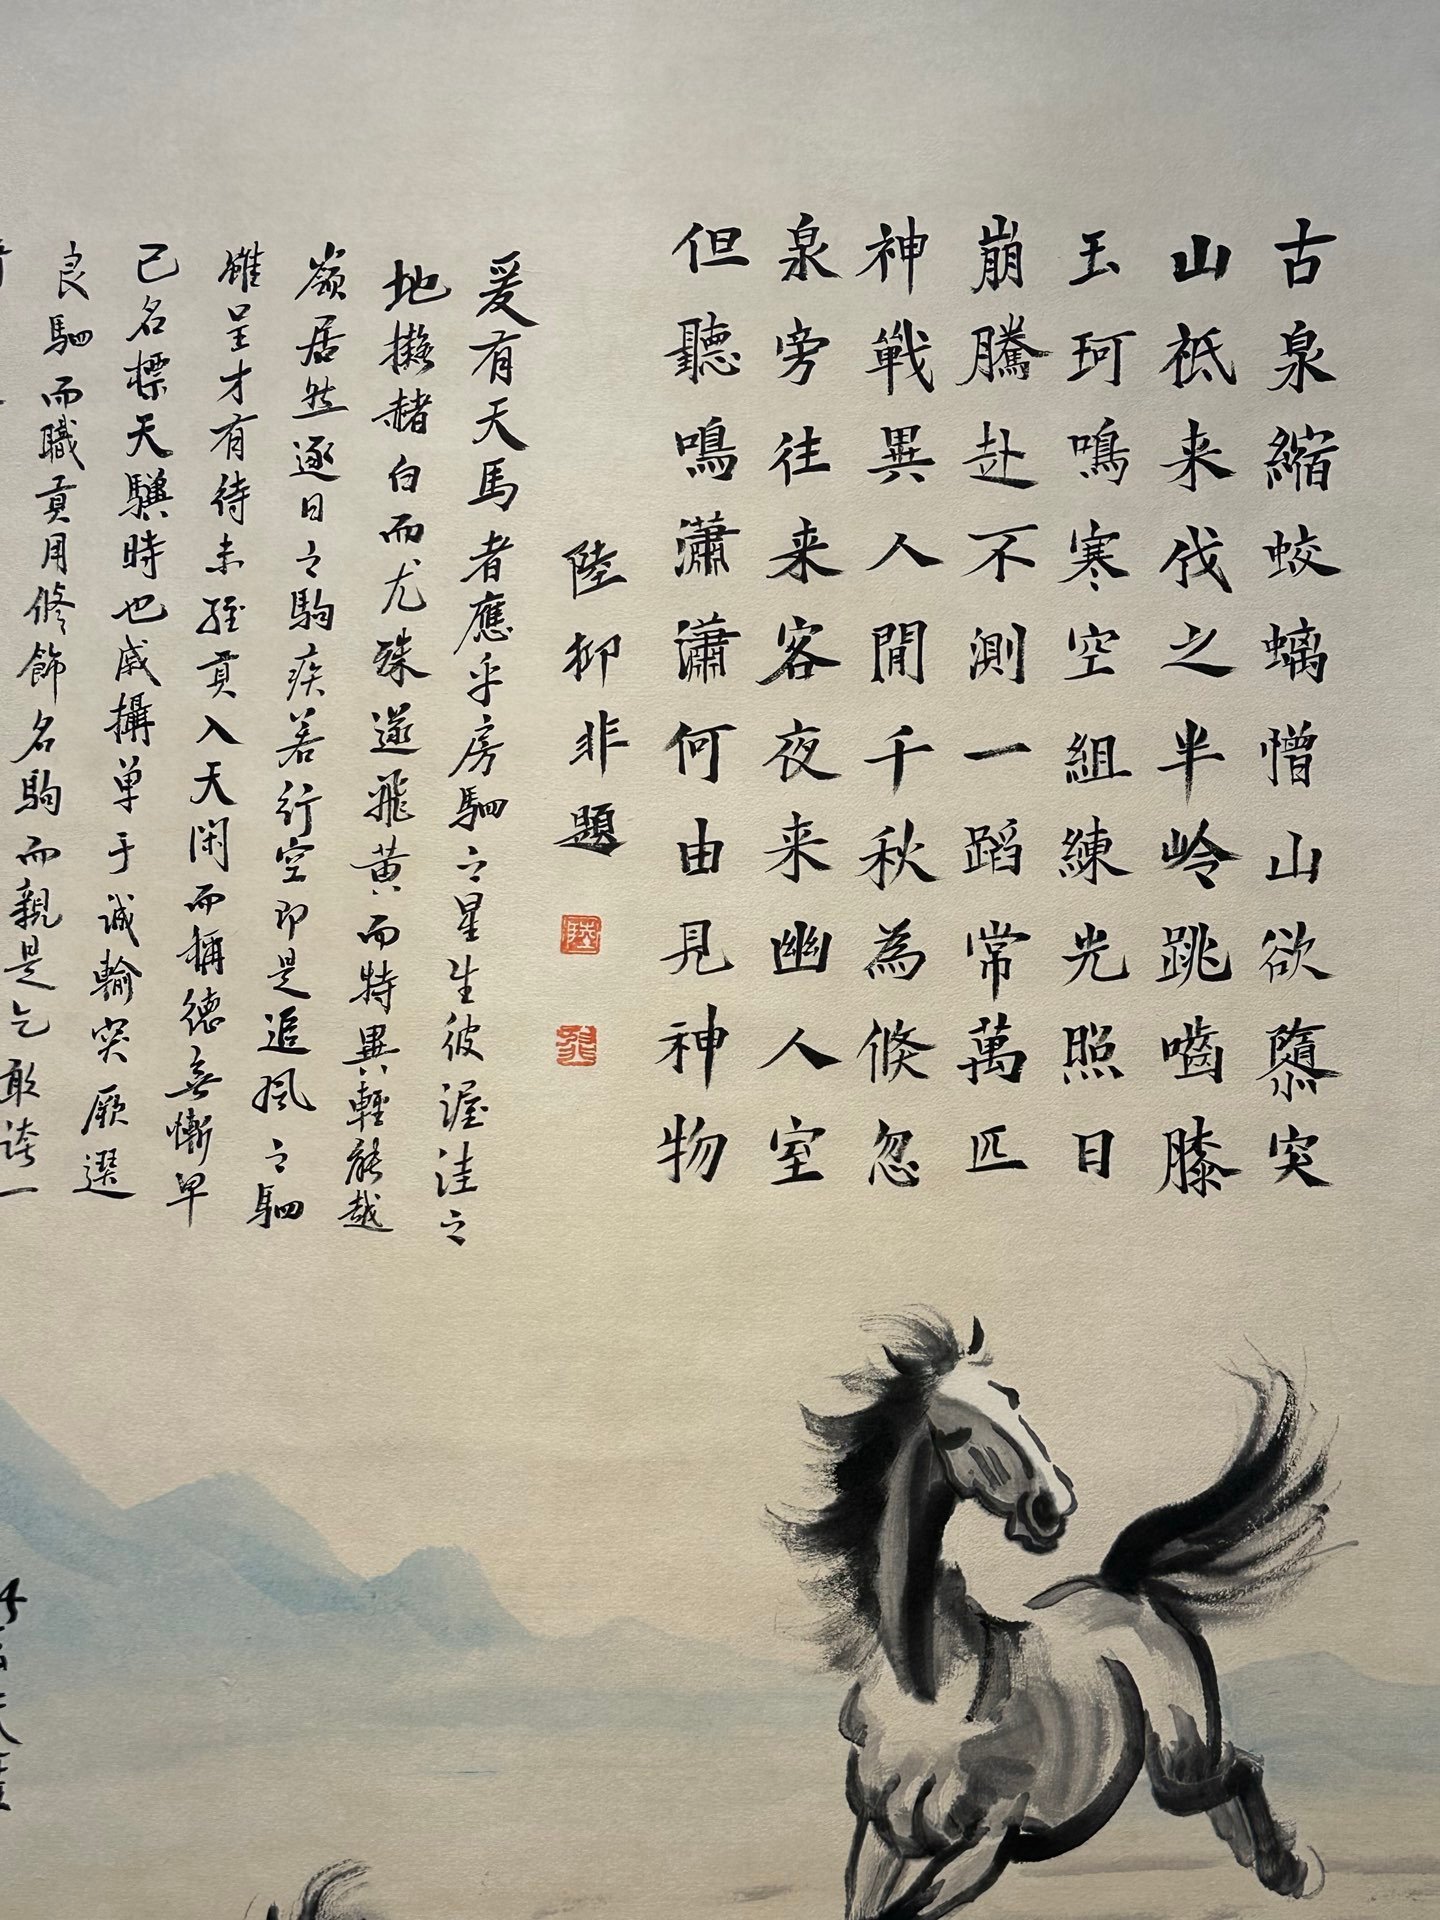 古泉縮蛟螭憎山欲隳突
山祇来伐之半岭跳嚙膝
玉珂鳴寒空組練光照日
崩騰赴不測一蹈常萬匹
神戰異人閒千秋為倐忽
泉旁往来客夜来幽人室
但聽鳴瀟瀟何由見神物
陸抑非題
陸
爰有天馬者應乎房駟之星生彼渥洼之
地擬赭白而尤殊遂飛黄而特異輕能越
嶺居然逐日之駒疾若行空即是追風之駟
雖呈才有待未經貢入天閑而稱德無慚早
已名標天驥時也威攝單于誠輸突厥選
良駟而職貢用修飾名駒而親是乞敢誇一